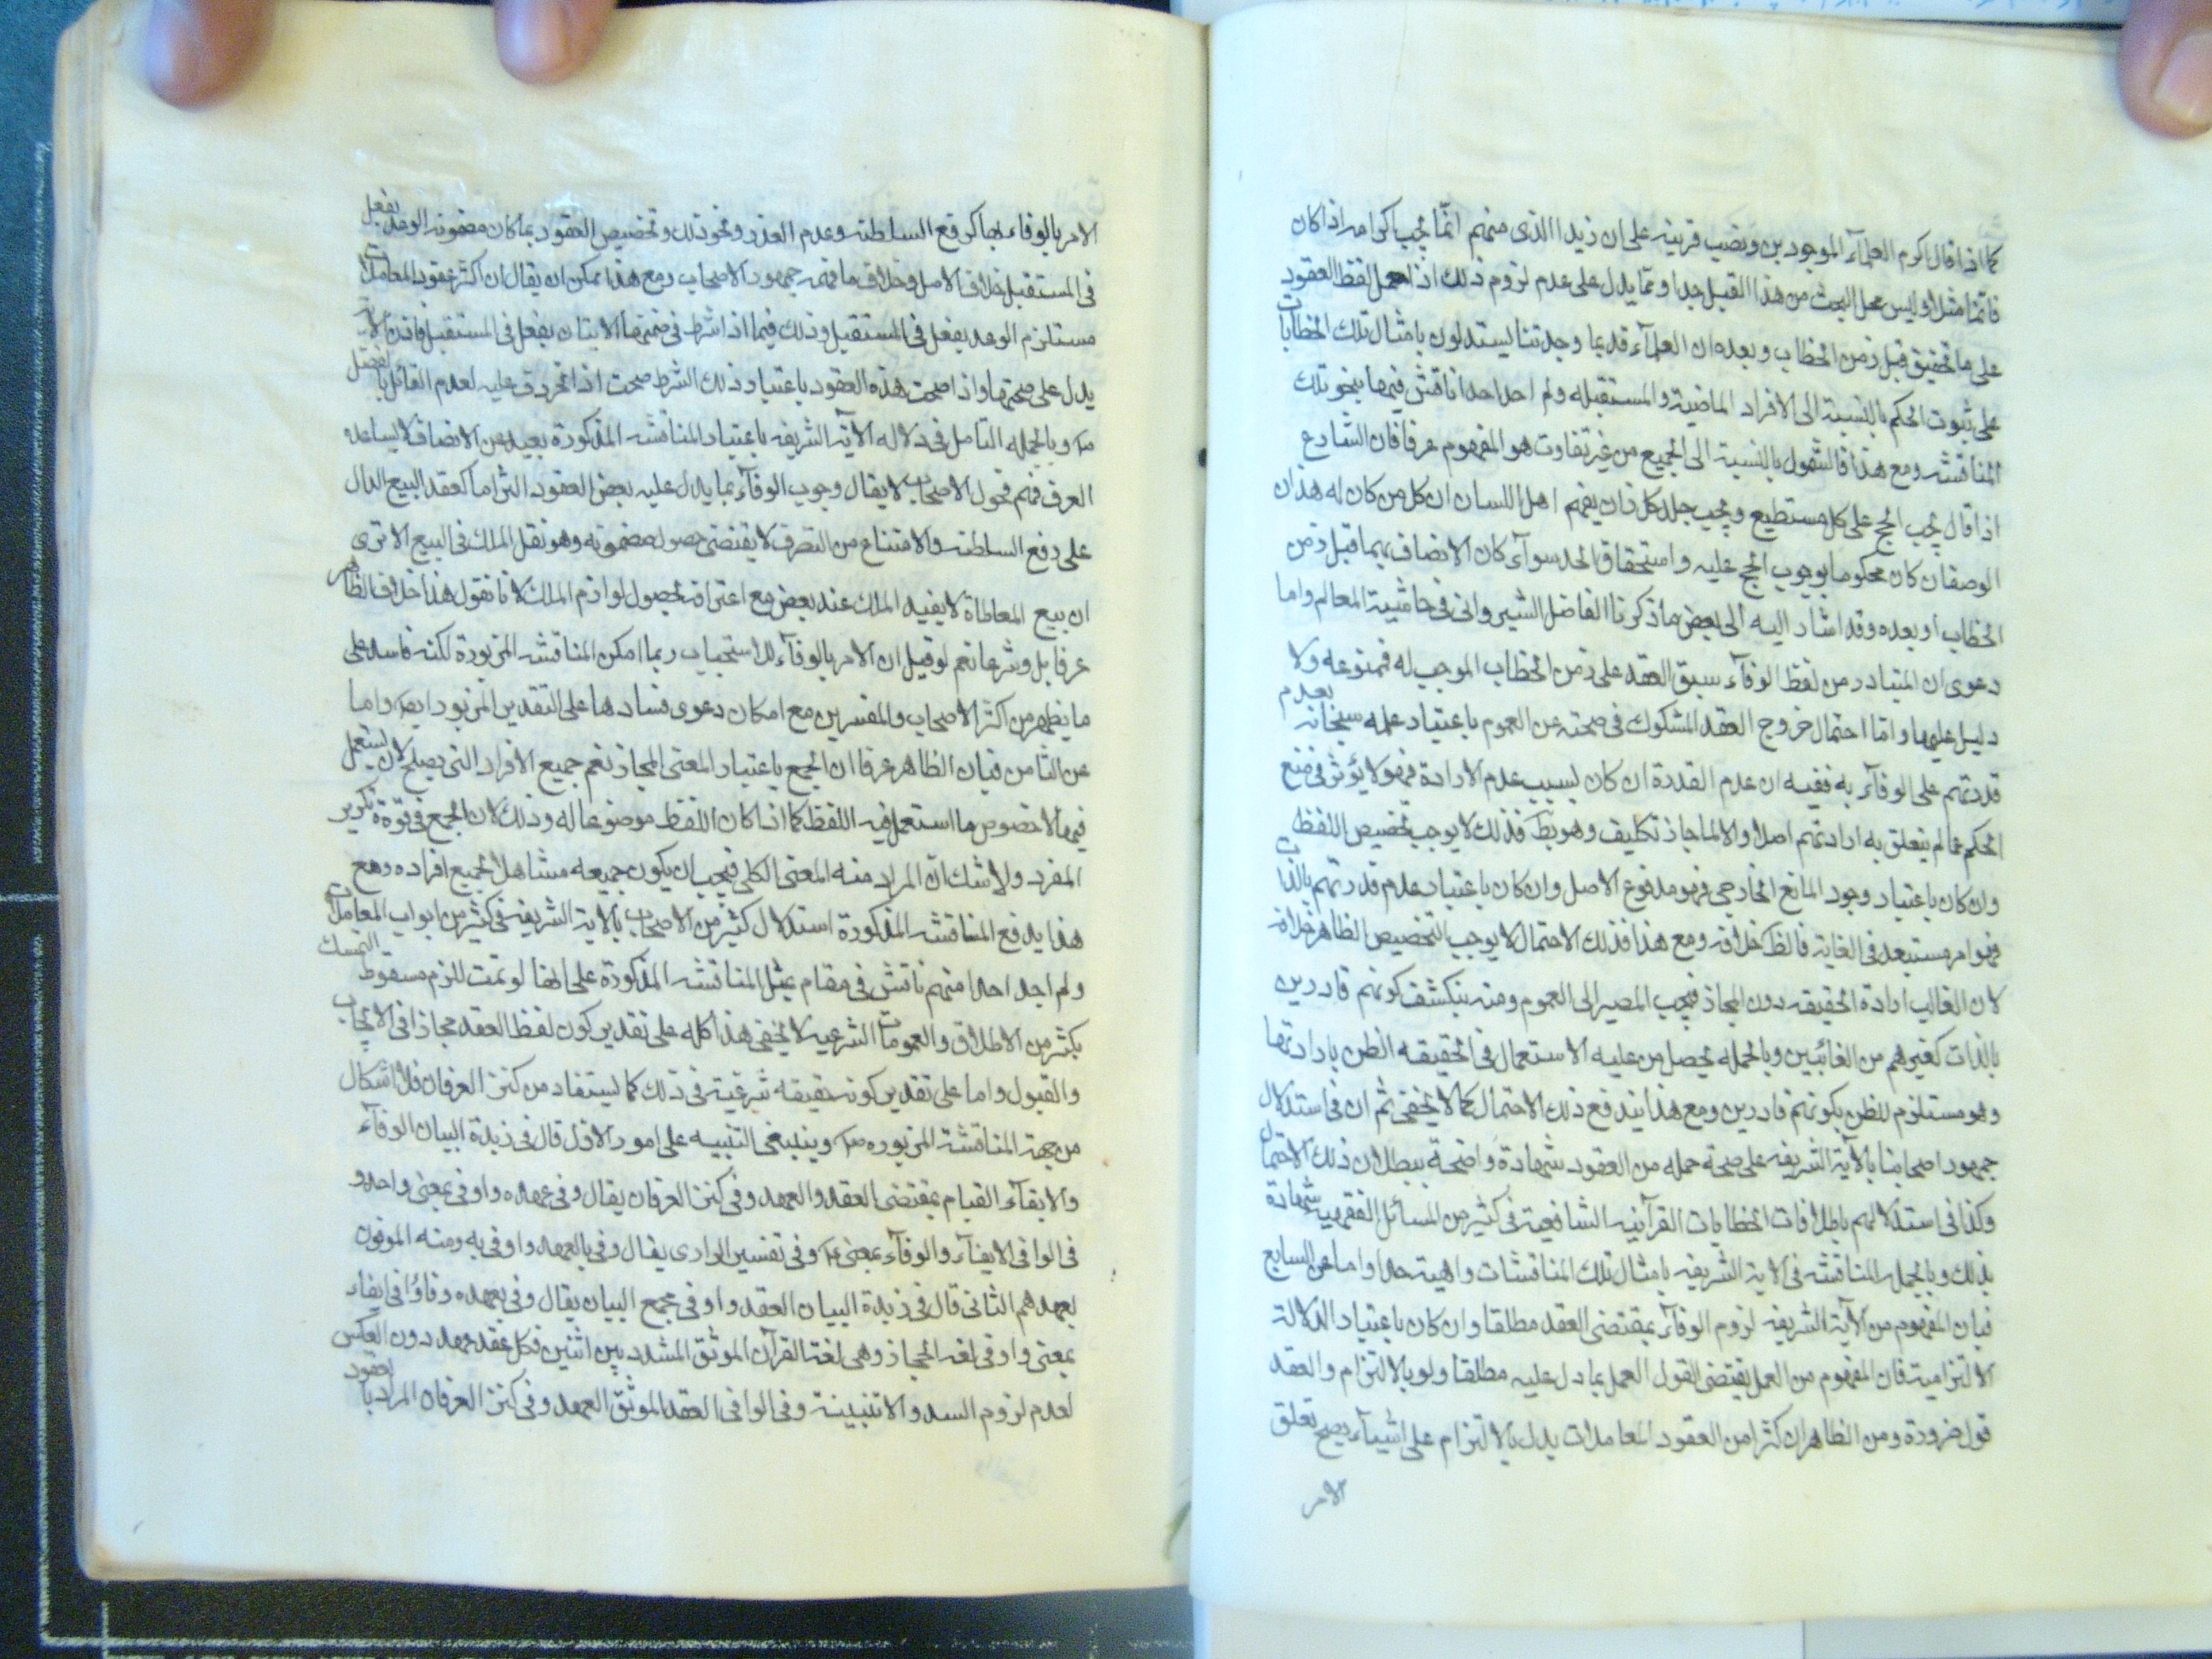 كما اذا قال اكرم العلمآء الموجودين ونصب قرينة على ان زيدا الذى منهم انما يجب اكرامه اذا كان
قائما مثلا وليس محل البحث من هذا القبيل جدا ومما يدل على عدم لزوم ذلك اذا حمل لفظ العقود
على ما تحقيق قبل زمن الخطاب وبعده ان العلمآء قديما وحديثا يستدلون بامثال تلك الخطابات
على ثبوت الحكم بالنسبة الى الافراد الماضية والمستقبله ولم اجد احدا ناقش فيها بنحو تلك
المناقشه ومع هذا فالشمول بالنسبة الى الجميع من غير تفاوت هو المفهوم عرفا فان الشارع
اذا قال يجب الحج على كل مستطيع ويجب جلد كل زان يفهم اهل اللسان ان كل من كان له هذان
الوصفان كان محكوما بوجوب الحج عليه واستحقاق الحد سوآء كان الاتصاف بهما قبل زمن
الخطاب او بعده وقد اشار اليه الى بعض ما ذكرنا الفاضل الشيروانى فى حاشية المعالم واما
دعوى ان المتبادر من لفظ الوفآء سبق العقد على زمن الخطاب الموجب له فممنوعه ولا
دليل عليها واما احتمال خروج العقد المشكوك فى صحته عن العموم باعتبار علمه سبحانه بعدم
قدرتهم على الوفآء به ففيه ان عدم القدرة ان كان بسبب عدم الارادة فهو لا يؤثر فى منع
الحكم عما لم يتعلق به ارادتهم اصلا والا لما جاز تكليف وهو بط فذلك لا يوجب تخصيص اللفظ
وان كان باعتبار وجود المانع الخارجى فهو مدفوع الاصل وان كان باعتبار عدم قدرتهم بالذات
فهو امر مستبعد فى الغاية فالظ خلافه ومع هذا فذلك الاحتمال لا يوجب التخصيص الظاهر خلافه
لان الغالب ارادة الحقيقه دون المجاز فيجب المصير الى العموم ومنه ينكشف كونهم قادرين
بالذات كغيرهم من الغائبين وبالجمله يحصل من عليه الاستعمال فى الحقيقه الظن بارادتها
وهو مستلزم للظن بكونهم قادرين ومع هذا يندفع ذلك الاحتمال كما لا يخفى ثم ان فى استدلال
جمهور اصحابنا بالآية الشريفه على صحة جمله من العقود شهادة واضحة ببطلان ذلك الاحتمال
وكذا فى استدلالهم باطلاقات الخطابات القرآنيه الشافعية فى كثير من المسائل الفقهيه شهادة
بذلك وبالجمله المناقشه فى الاية الشريفه بامثال تلك المناقشات واهية جدا واما عن السابع
فبان المفهوم من الآية الشريفه لزوم الوفآء بمقتضى العقد مطلقا وان كان باعتبار الدلالة
الالتزامية فان المفهوم من العمل بمقتضى القول العمل بما دل عليه مطلقا ولو بالالتزام والعقد
قول ضرورة ومن الظاهر ان كثرا من العقود المعاملات يدل بالالتزام على اشيآء يصلح تعلق
الامر
الامر بالوفاء بها كرفع السلطنه وعدم العذر ونحو ذلك وتخصيص العقود بما كان مضمونه الوعد بفعل
فى المستقبل خلاف الاصل وخلاف ما فهمه جمهور الاصحاب ومع هذا يمكن ان يقال ان اكثر عقود المعاملات
مستلزم الوعد بفعل فى المستقبل وذلك فيما اذا شرط فى ضمنها الاتيان بفعل فى المستقبل فاذن الاية
يدل على صحتها واذا صحت هذه العقود باعتبار ذلك الشرط صحت اذا تجردت عليه لعدم القائل بالفصل
وبالجمله التامل فى دلاله الآية الشريفه باعتبار المناقشه المذكورة بعيد عن الانصاف لا يساعده
العرف فهم فحول الاصحاب لا يقال وجوب الوفآء بما يدل عليه بعض العقود التزاما كعقد البيع الدال
على رفع السلطنه والامتناع من التصرف لا يقتضى حصول مضمونه وهو نقل الملك فى البيع الا ترى
ان بيع المعاطاة لا يفيد الملك عند بعض مع اعترافه بحصول لوازم الملك لانا نقول هذا خلاف الظاهر
عرفا بل وشرعا نعم لو قيل ان الامر بالوفآء للاستحباب ربما امكن المناقشه المزبورة لكنه فاسد على
ما يظهر من اكثر الاصحاب والمفسرين مع امكان دعوى فسادها على التقدير المزبور ايضا واما
عن الثامن فبان الظاهر عرفا ان الجمع باعتبار المعنى المجاز نعم جميع الافراد التى يصلح لان يستعمل
فيها لا خصوص ما استعمل فيه اللفظ كما اذا كان اللفظ موضوعا له وذلك لان الجمع فى قوة تكرير
المفرد ولا شك ان المراد منه المعنى الكلى فيجب ان يكون جميعه مشاهلا لجميع افراده ومع
هذا يدفع المناقشه المذكورة استدلال كثير من الاصحاب بالاية الشريفه فى كثير من ابواب المعاملات
ولم اجد احدا منهم ناقش فى مقام بمثل المناقشه المذكورة على انها لو تمت للزم سقوط التمسك
بكثير من الاطلاق والعمومات الشرعيه لا يخفى هذا كله على تقدير كون لفظ العقد مجازا فى الايجاب
والقبول واما على تقدير كونه حقيقه شرعية فى ذلك كما يستفاد من كنز العرفان فلا اشكال
من جهة المناقشة المزبوره وينبغى التنبيه على امور الاول قال فى زبدة البيان الوفآء
والايفآء القيام بمقتضى العقد والعهد وفى كنز العرفان يقال وفى بعهده واوفى بمعنى واحد و
فى الوافى الايفآء والوفآء بمعنى وفى تفسير الرازى يقال وفى بالعهد واوفى به ومنه الموفون
بعهدهم الثانى قال فى زبدة البيان العقد واوفى مجمع البيان يقال وفى بعهده وفاؤا فى ايفاء
بمعنى واوفى لغه الحجاز وهى لغة القرآن الموثق المشدد بين اثنين فكل عقد عهد دون العكس
لعدم لزوم السد والاتنينة وفى الوافى العقد الموثق العهد وفى كنز العرفان المراد بالعقود